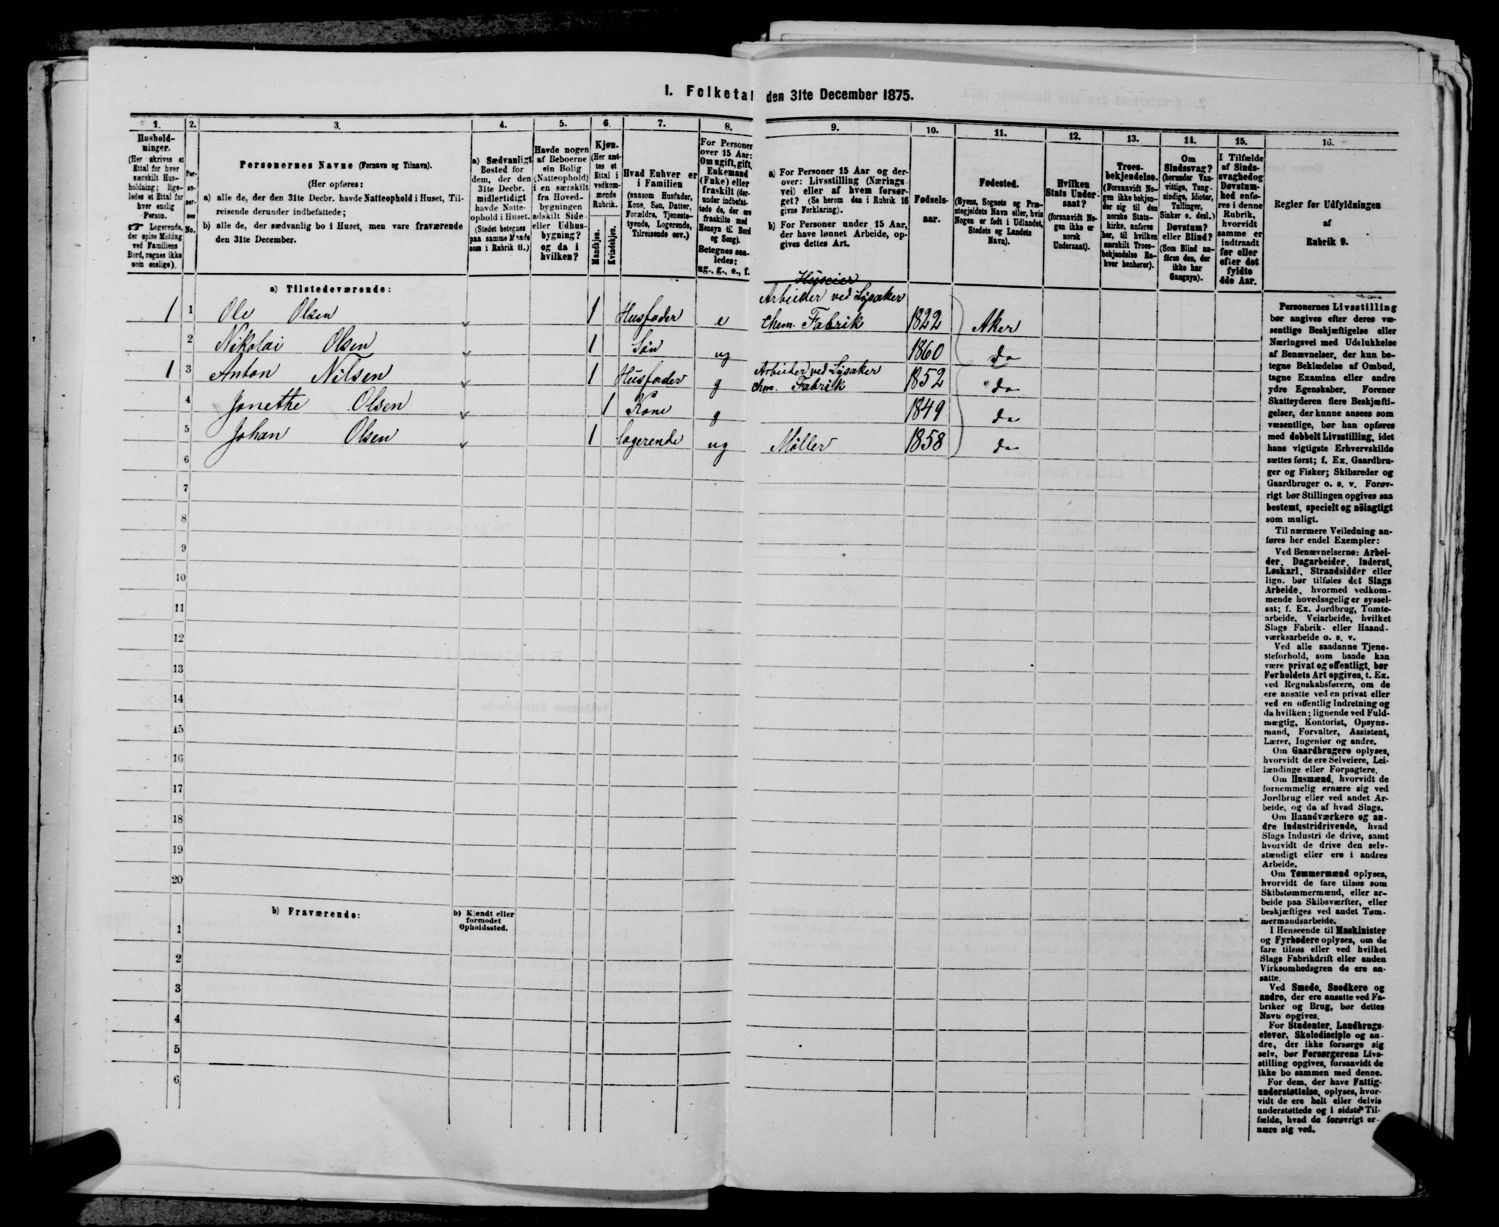 I. Folketal den 31te December 1875.
1. 2. 3. 4. 5. 6. 7. 8. 9. 10. 11. 12. 13. 14. 15. 16.
Hushold-
ninger.
(Her skrives et
Ettal for hver
særskilt Hus-
holdning; lige-
ledes et Ettal for
hver enslig
Person.
☞ Logerende,
der spise Middag
ved Familiens
Bord, regnes ikke
som enslige).
Per-
so-
ner-
nes
No.
Personernes Navne (Fornavn og Tilnavn).
(Her opføres:
a) alle de, der den 31te Decbr. havde Natteophold i Huset, Til-
reisende derunder indbefattede;
b) alle de, der sædvanlig bo i Huset, men vare fraværende
den 31te December.
a) Sædvanligt
Bosted for
dem, der den
31te Decbr.
midlertidigt
havde Natte-
ophold i Huset.
(Stedet betegnes
paa samme Maade
som i Rubrik 11.)
Havde nogen
af Beboerne
sin Bolig
(Natteophold)
i en særskilt
fra Hoved-
bygningen
adskilt Side-
eller Udhus-
bygning?
og da i
hvilken?
Kjøn.
(Her sæt-
tes et
Ettal i
vedkom-
mende
Rubrik.
Mandkjøn.
Kvindekjøn.
Hvad Enhver er
i Familien
(saasom Husfader,
Kone, Søn, Datter,
Forældre, Tjeneste-
tyende, Logerende,
Tilreisende osv.)
For Personer
over 15 Aar:
Om ugift, gift,
Enkemand
(Enke) eller
fraskilt (der-
under indbefat-
tede de, der ere
fraskilte med
Hensyn til Bord
og Seng).
Betegnes saa-
ledes:
ug., g., e., f.
a) For Personer 15 Aar og der-
over: Livsstilling (Nærings-
vei) eller af hvem forsør-
get? (Se herom den i Rubrik 16
givne Forklaring).
b) For Personer under 15 Aar,
der have lønnet Arbeide, op-
gives dettes Art.
Fødsels-
aar.
Fødested.
(Byens, Sognets og Præ-
stegjeldets Navn eller, hvis
Nogen er født i Udlandet,
Stedets og Landets
Navn).
Hvilken
Stats Under-
saat?
(forsaavidt No-
gen ikke er
norsk
Undersaat).
Troes-
bekjendelse.
(Forsaavidt No-
gen ikke bekjen-
der sig til den
norske Stats-
kirke, anføres
her, til hvilken
særskilt Troes-
bekjendelse En-
hver henhører).
Om
Sindssvag?
(herunder Van-
vittige, Tung-
sindige, Idioter,
Tullinger,
Sinker o. desl.)
Døvstum?
eller Blind?
(Som Blind an-
føres den, der
ikke har
Gangsyn).
I Tilfælde
af Sinds-
svaghed og
Døvstum-
hed anfø-
res i denne
Rubrik,
hvorvidt
samme er
indtraadt
før eller
efter det
fyldte
4de Aar.
Regler for Udfyldningen
af
Rubrik 9.
a) Tilstedeværende:
Huseier
1 1 Ole Olsen 1 Husfader e Arbeider ved Lysaker Chem. Fabrik 1822 Aker
2 Nikolai Olsen 1 Søn ug 1860 do
1 3 Anton Nilsen 1 Husfader g Arbeider ved Lysaker Chem. Fabrik 1852 do
4 Jonethe Olsen 1 Kone g 1849 do
5 Johan Olsen 1 logerende ug Møller 1858 do
6
7
8
9
10
11
12
13
14
15
16
17
18
19
20
b) Fraværende:
b) Kjendt eller
formodet
Opholdssted.
1
2
3
4
5
6
Personernes Livsstilling
bør angives efter deres væ-
sentlige Beskjæftigelse eller
Næringsvei med Udelukkelse
af Benævnelser, der kun be-
tegne Beklædelse af Ombud,
tagne Examina eller andre
ydre Egenskaber. Forener
Skatteyderen flere Beskjæfti-
gelser, der kunne ansees som
væsentlige, bør han opføres
med dobbelt Livsstilling, idet
hans vigtigste Erhvervskilde
sættes først; f. Ex. Gaardbru-
ger og Fisker; Skibsreder og
Gaardbruger o. s. v. Forøv-
rigt bør Stillingen opgives saa
bestemt, specielt og nöiagtigt
som muligt.
Til nærmere Veiledning an-
føres her endel Exempler:
Ved Benævnelserne: Arbei-
der, Dagarbeider, Inderst,
Løskarl, Strandsidder eller
lign. bør tilføies det Slags
Arbeide, hvormed vedkom-
mende hovedsagelig er syssel-
sat; f. Ex. Jordbrug, Tomte-
arbeide, Veiarbeide, hvilket
Slags Fabrik- eller Haand-
værksarbeide o. s. v.
Ved alle saadanne Tjene-
steforhold, som baade kan
være privat og offentligt, bør
Forholdets Art opgives, t. Ex.
ved Regnskabsførere, om de
ere ansatte ved en privat eller
ved en offentlig Indretning og
da hvilken; lignende ved Fuld-
mægtig, Kontorist, Opsyns-
mand, Forvalter, Assistent,
Lærer, Ingeniør og andre.
Om Gaardbrugere oplyses,
hvorvidt de ere Selveiere, Lei-
lændinge eller Forpagtere.
Om Husmænd, hvorvidt de
fornemmelig ernære sig ved
Jordbrug eller ved andet Ar-
beide, og da af hvad Slags.
Om Haandværkere og an-
dre Industridrivende, hvad
Slags Industri de drive, samt
hvorvidt de drive den selv-
stændigt eller ere i andres
Arbeide.
Om Tømmermænd oplyses,
hvorvidt de fare tilsøs som
Skibstømmermænd, eller ar-
beide paa Skibsværfter, eller
beskjæftiges ved andet Tøm-
mermandsarbeide.
I Henseende til Maskinister
og Fyrbødere oplyses, om de
fare tilsøs eller ved hvilket
Slags Fabrikdrift eller anden
Virksomhedsgren de ere an-
satte.
Ved Smede, Snedkere og
andre, der ere ansatte ved Fa-
briker og Brug, bør dettes
Navn opgives.
For Studenter, Landbrugs-
elever, Skoledisciple og an-
dre, der ikke forsørge sig
selv, bør Forsørgerens Livs-
stilling opgives, forsaavidt de
ikke bo sammen med denne.
For dem, der have Fattig-
understøttelse, oplyses, hvor-
vidt de ere helt eller delvis
understøttede og i sidste Til-
fælde, hvad de forøvrigt er-
nære sig ved.